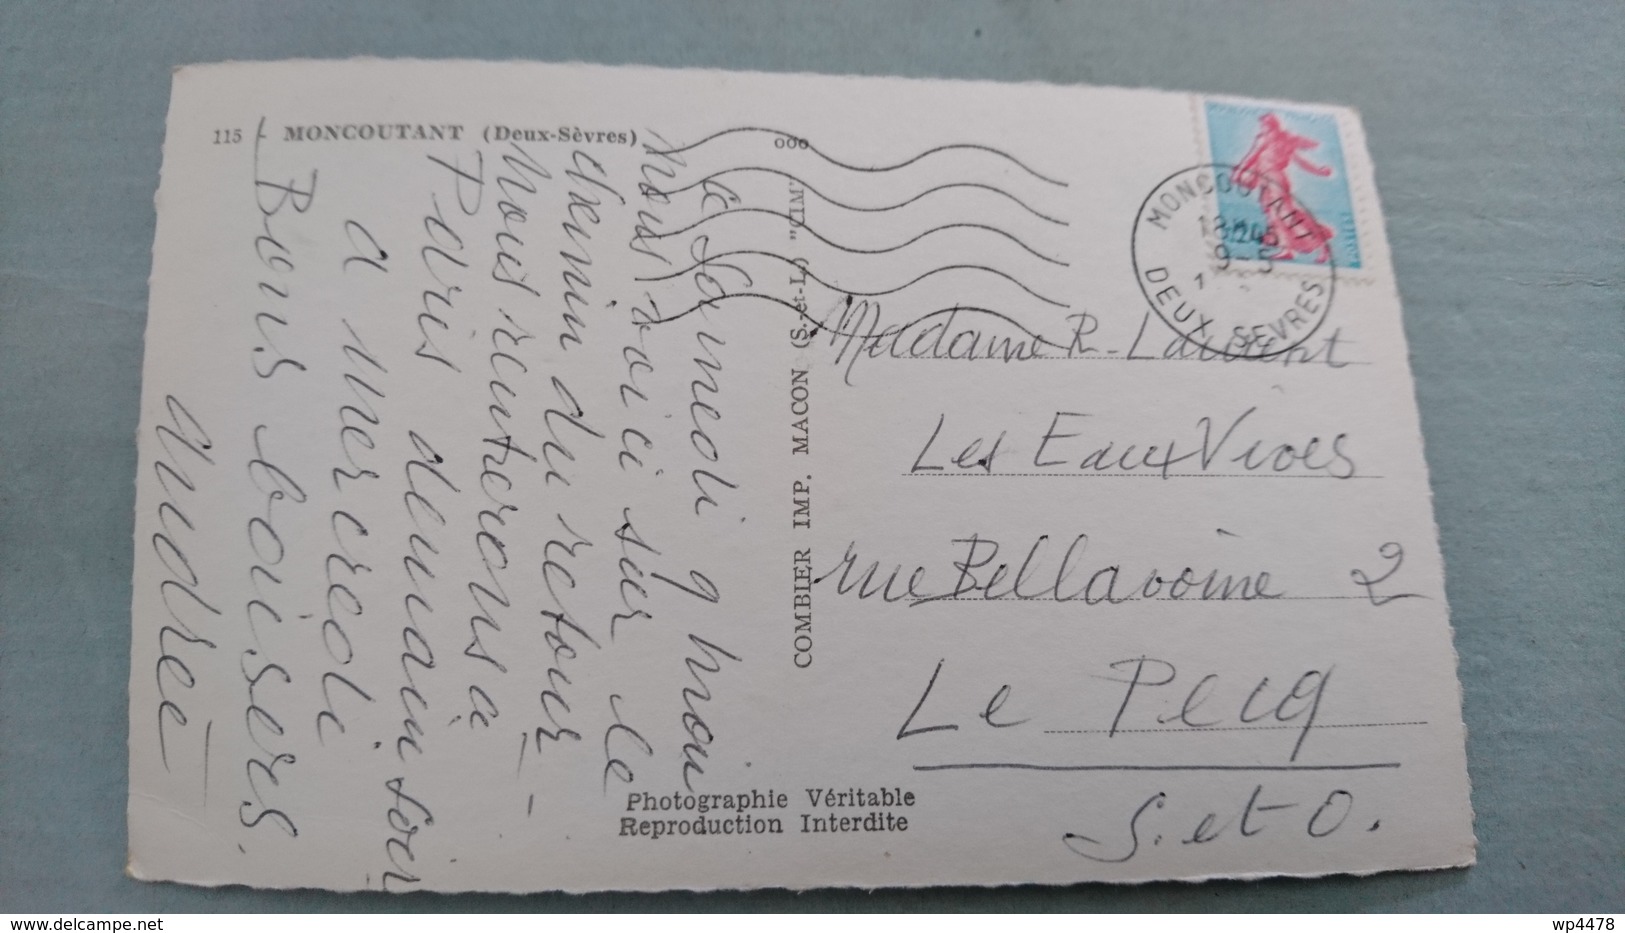 115 - MONCOUTANT (Deux-Sèvres)
ooo
le Samedi 9 mai
Nous voici sur le
chemin du retour -
Nous rentrerons à
Paris demain soir
a mercredi
Bons baisers.
Andrée
COMBIER IMP. MACON (S.-et-L.) "CIM"
MONCOUTANT
18H45
9-5
DEUX SEVRES
POSTES
Madame R. Laurent
Les Eaux Vives
rue Bellavoine 2
Le Pecq
S. et O.
Photographie Véritable
Reproduction Interdite
delcampe.net
wp4478